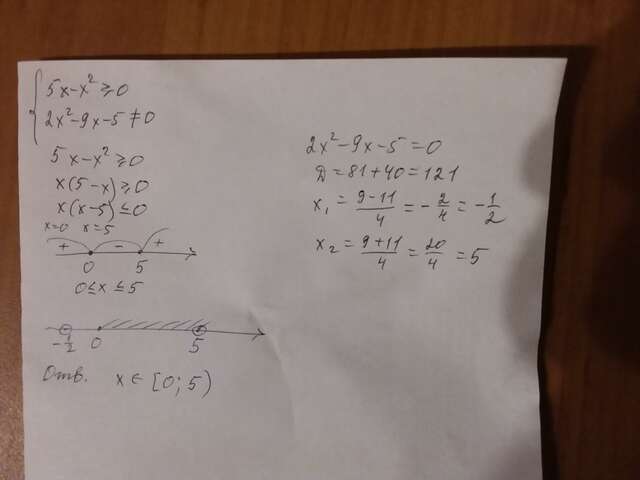 5x-x²⩾0
2x²-9x-5≠0
5x-x²⩾0
x(5-x)⩾0
x(x-5)≤0
x=0 x=5
+ - +
0 5
0≤x≤5
-1/2 0 5
Отв. x∈[0;5)
2x²-9x-5=0
Д=81+40=121
x₁=(9-11)/4=-2/4=-1/2
x₂=(9+11)/4=20/4=5